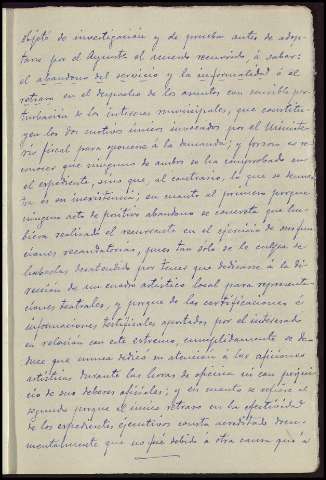 objeto de investigación y de prueba antes de adop-
tarse por el Ayunto el acuerdo recurrido, á saber:
el abandono del servicio y la informalidad ó el
retraso en el despacho de los asuntos con sensible per-
turbación de los intereses municipales, que constitu-
yen los dos motivos únicos invocados por el Ministe-
rio fiscal para oponerse á la demanda; y forzoso es re-
conocer que ninguno de ambos se ha comprobado en
el expediente, sino que, al contrario, lo que se demues-
tra es su inexistencia; en cuanto al primero porque
ningún acto de positivo abandono se concreta que hu-
biera realizado el recurrente en el ejercicio de sus fun-
ciones recaudatorias, pues tan sólo se le culpa de
haberlas desatendido por tener que dedicarse á la di-
rección de un cuadro artístico local para representa-
ciones teatrales, y porque de las certificaciones é
informaciones testificales aportadas por el interesado
en relación con este extremo, cumplidamente se de-
duce que nunca dedicó su atención á las aficiones
artísticas durante las horas de oficina ni con perjui-
cio de sus deberes oficiales; y en cuanto se refiere al
segundo porque el único retraso en la efectividad
de los expedientes ejecutivos consta acreditado docu-
mentalmente que no fué debido á otra causa que á